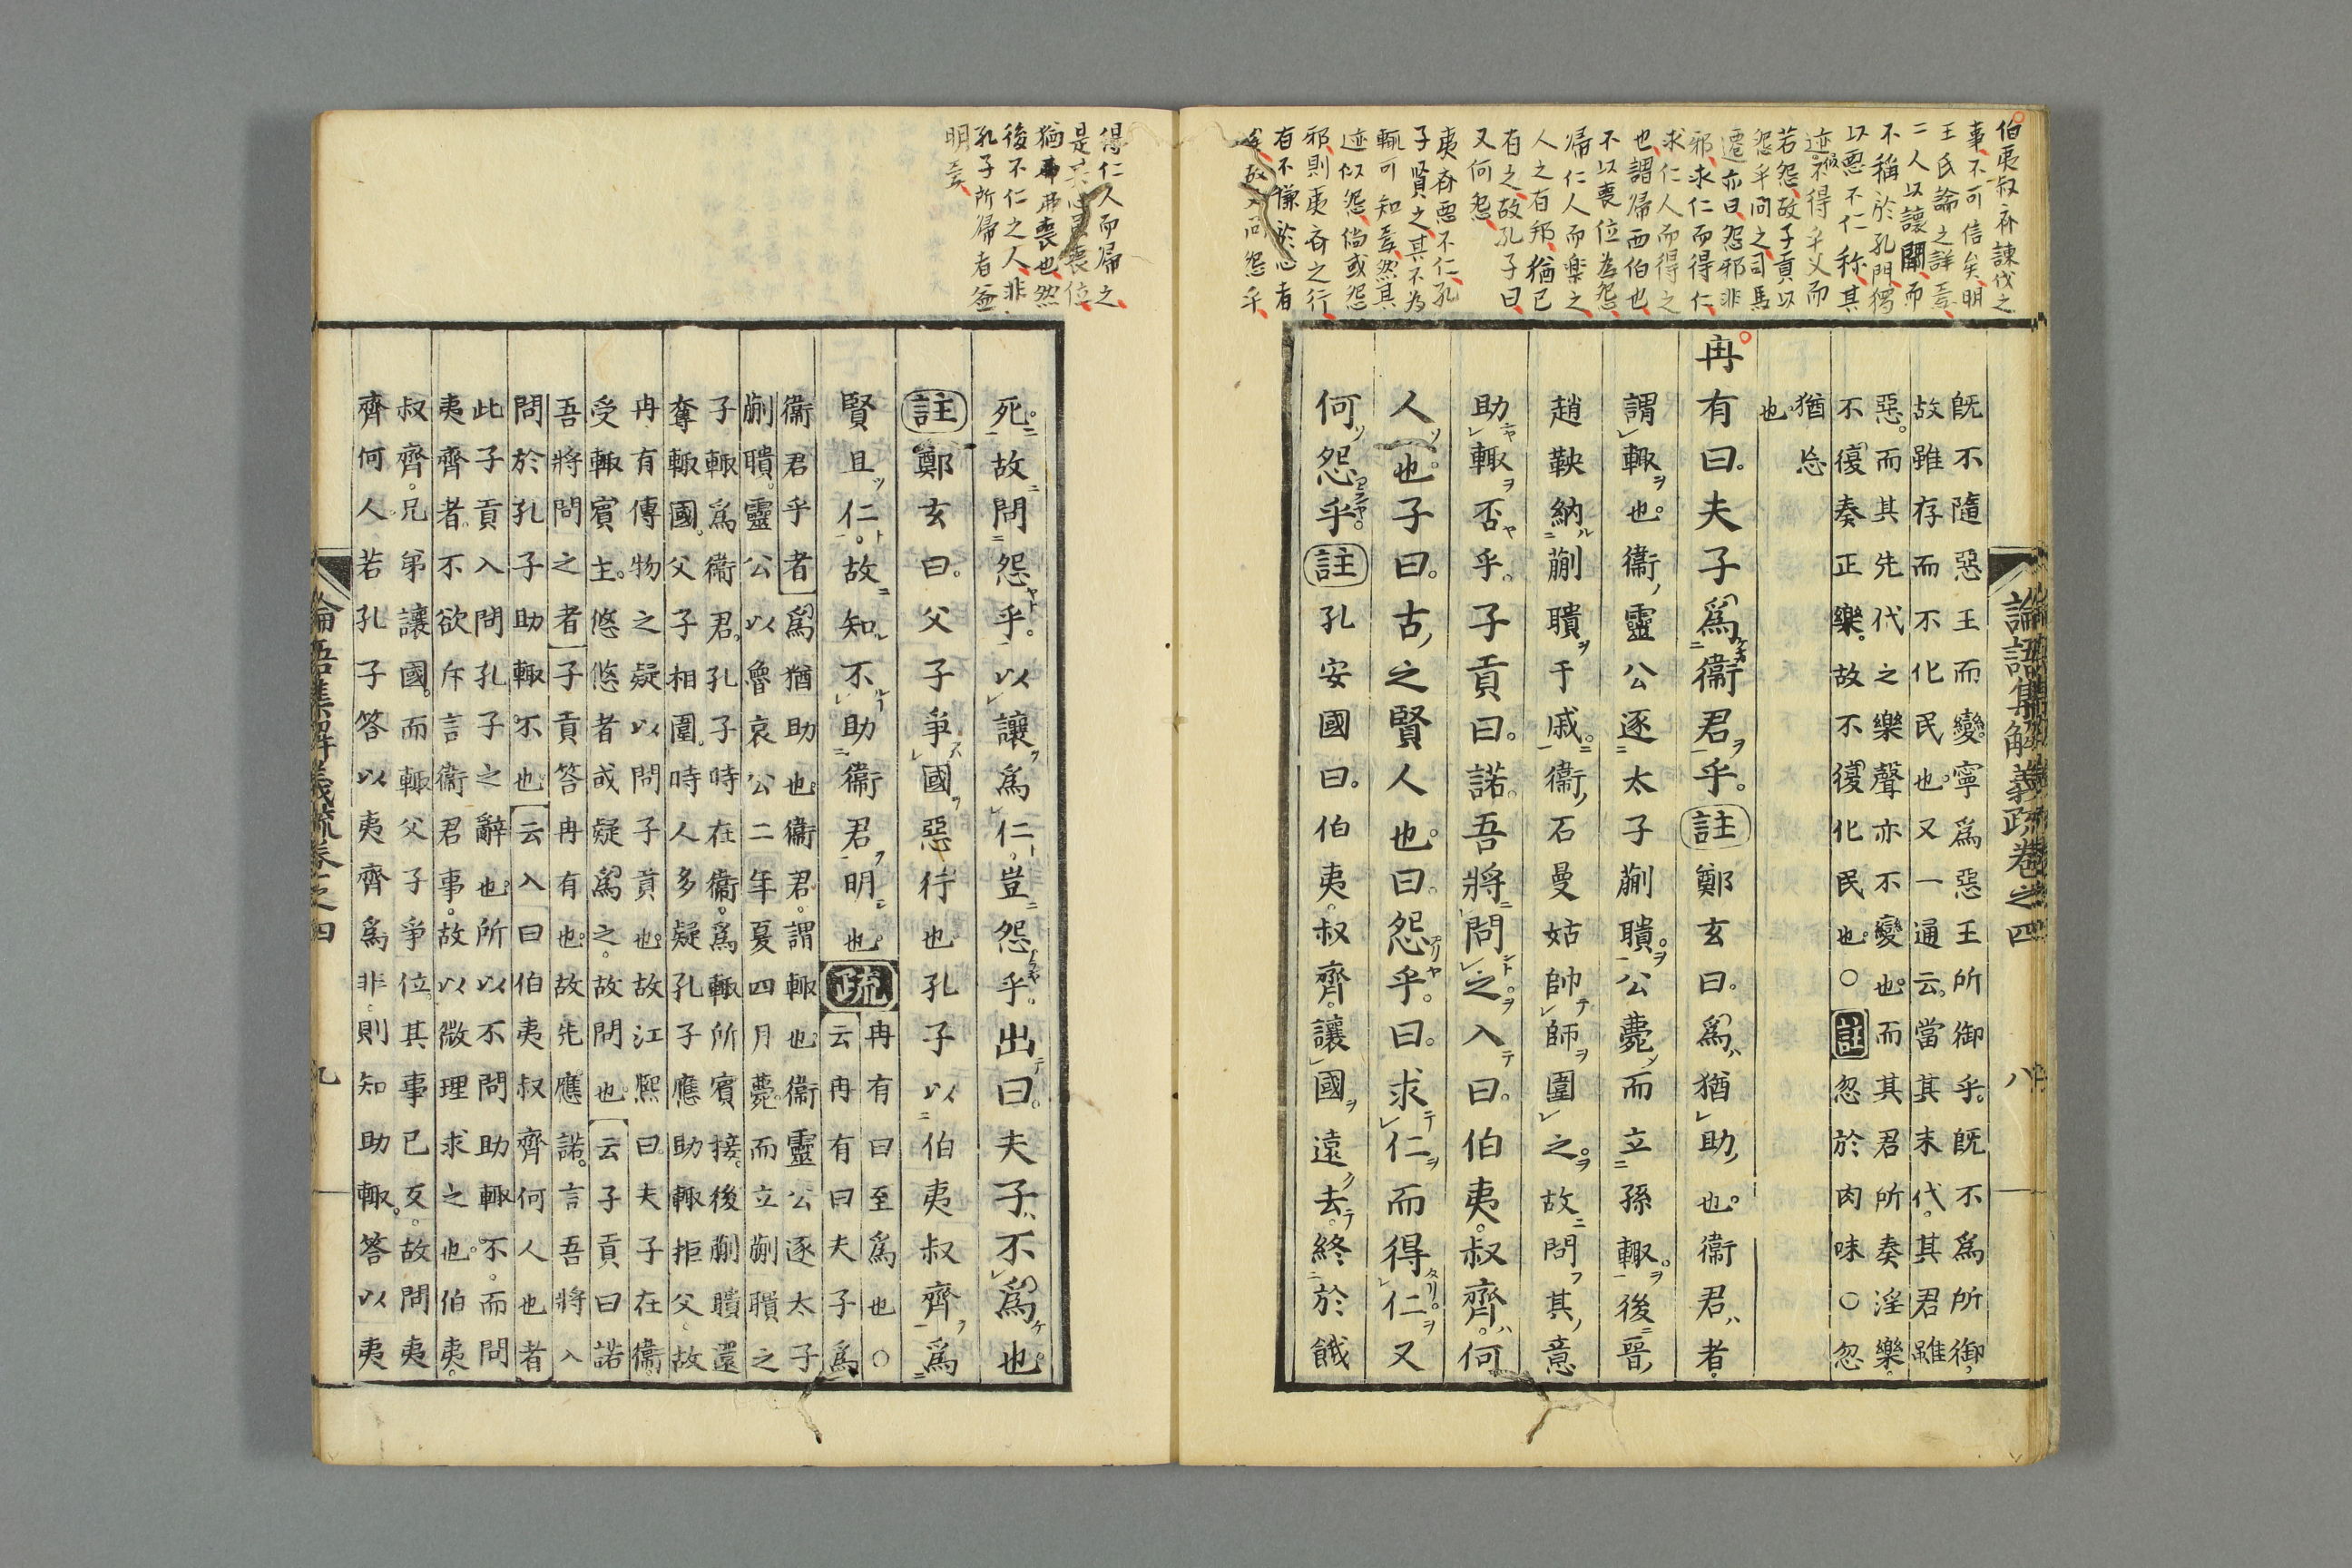 伯夷叔齊諫伐之
事不可信矣明
王氏論之詳矣
二人以讓聞而
不稱於孔門獨
以惡不仁称其
迹不得乎父而
若怨故子貢以
怨乎問之司馬
遷亦曰怨邪非
邪求仁而得仁
求仁人而得之
也謂帰西伯也
不以喪位為怨
帰仁人而楽之
人之有邦猶已
有之故孔子曰
又何怨
夷齊惡不仁孔
子賢之其不為
輒可知矣然其
迹似怨倘或怨
邪則夷齊之行
有不慊於心者
故問怨乎
論語集解義疏卷之四
八
既不隨惡王而變寧爲惡王所御乎既不爲所御
故雖存而不化民也又一通云當其末代其君雖
惡而其先代之樂聲亦不變也而其君所奏淫樂
不復奏正樂故不復化民也○註忽於肉味○忽
猶忘
也
冉有曰夫子爲衞君乎註鄭玄曰爲猶助也衞君者
謂輒也衞靈公逐太子蒯聵公薨而立孫輒後晉
趙鞅納蒯聵于戚衞石曼姑帥師圍之故問其意
助輒否乎子貢曰諾吾將問之入曰伯夷叔齊何
人也子曰古之賢人也曰怨乎曰求仁而得仁又
何怨乎註孔安國曰伯夷叔齊讓國遠去終於餓
得仁人而帰之
是喪位
猶弗喪也然
後不仁之人非
孔子所帰者益
明矣
死故問怨乎以讓爲仁豈怨乎出曰夫子不爲也
註鄭玄曰父子爭國惡行也孔子以伯夷叔齊爲
賢且仁故知不助衞君明也疏
冉有曰至爲也○
云冉有曰夫子爲
衞君乎者爲猶助也衞君謂輒也衞靈公逐太子
蒯聵靈公以魯哀公二年夏四月薨而立蒯聵之
子輒爲衞君孔子時在衞爲輒所賓接後蒯聵還
奪輒國父子相圍時人多疑孔子應助輒拒父故
冉有傳物之疑以問子貢也故江熙曰夫子在衞
受輒賓主悠悠者或疑爲之故問也云子貢曰諾
吾將問之者子貢答冉有也故先應諾言吾將入
問於孔子助輒不也云入曰伯夷叔齊何人也者
此子貢入問孔子之辭也所以不問助輒不而問
夷齊者不欲斥言衞君事故以微理求之也伯夷
叔齊兄弟讓國而輒父子爭位其事已反故問夷
齊何人若孔子答以夷齊爲非則知助輒答以夷
論語集解義疏卷之四
九